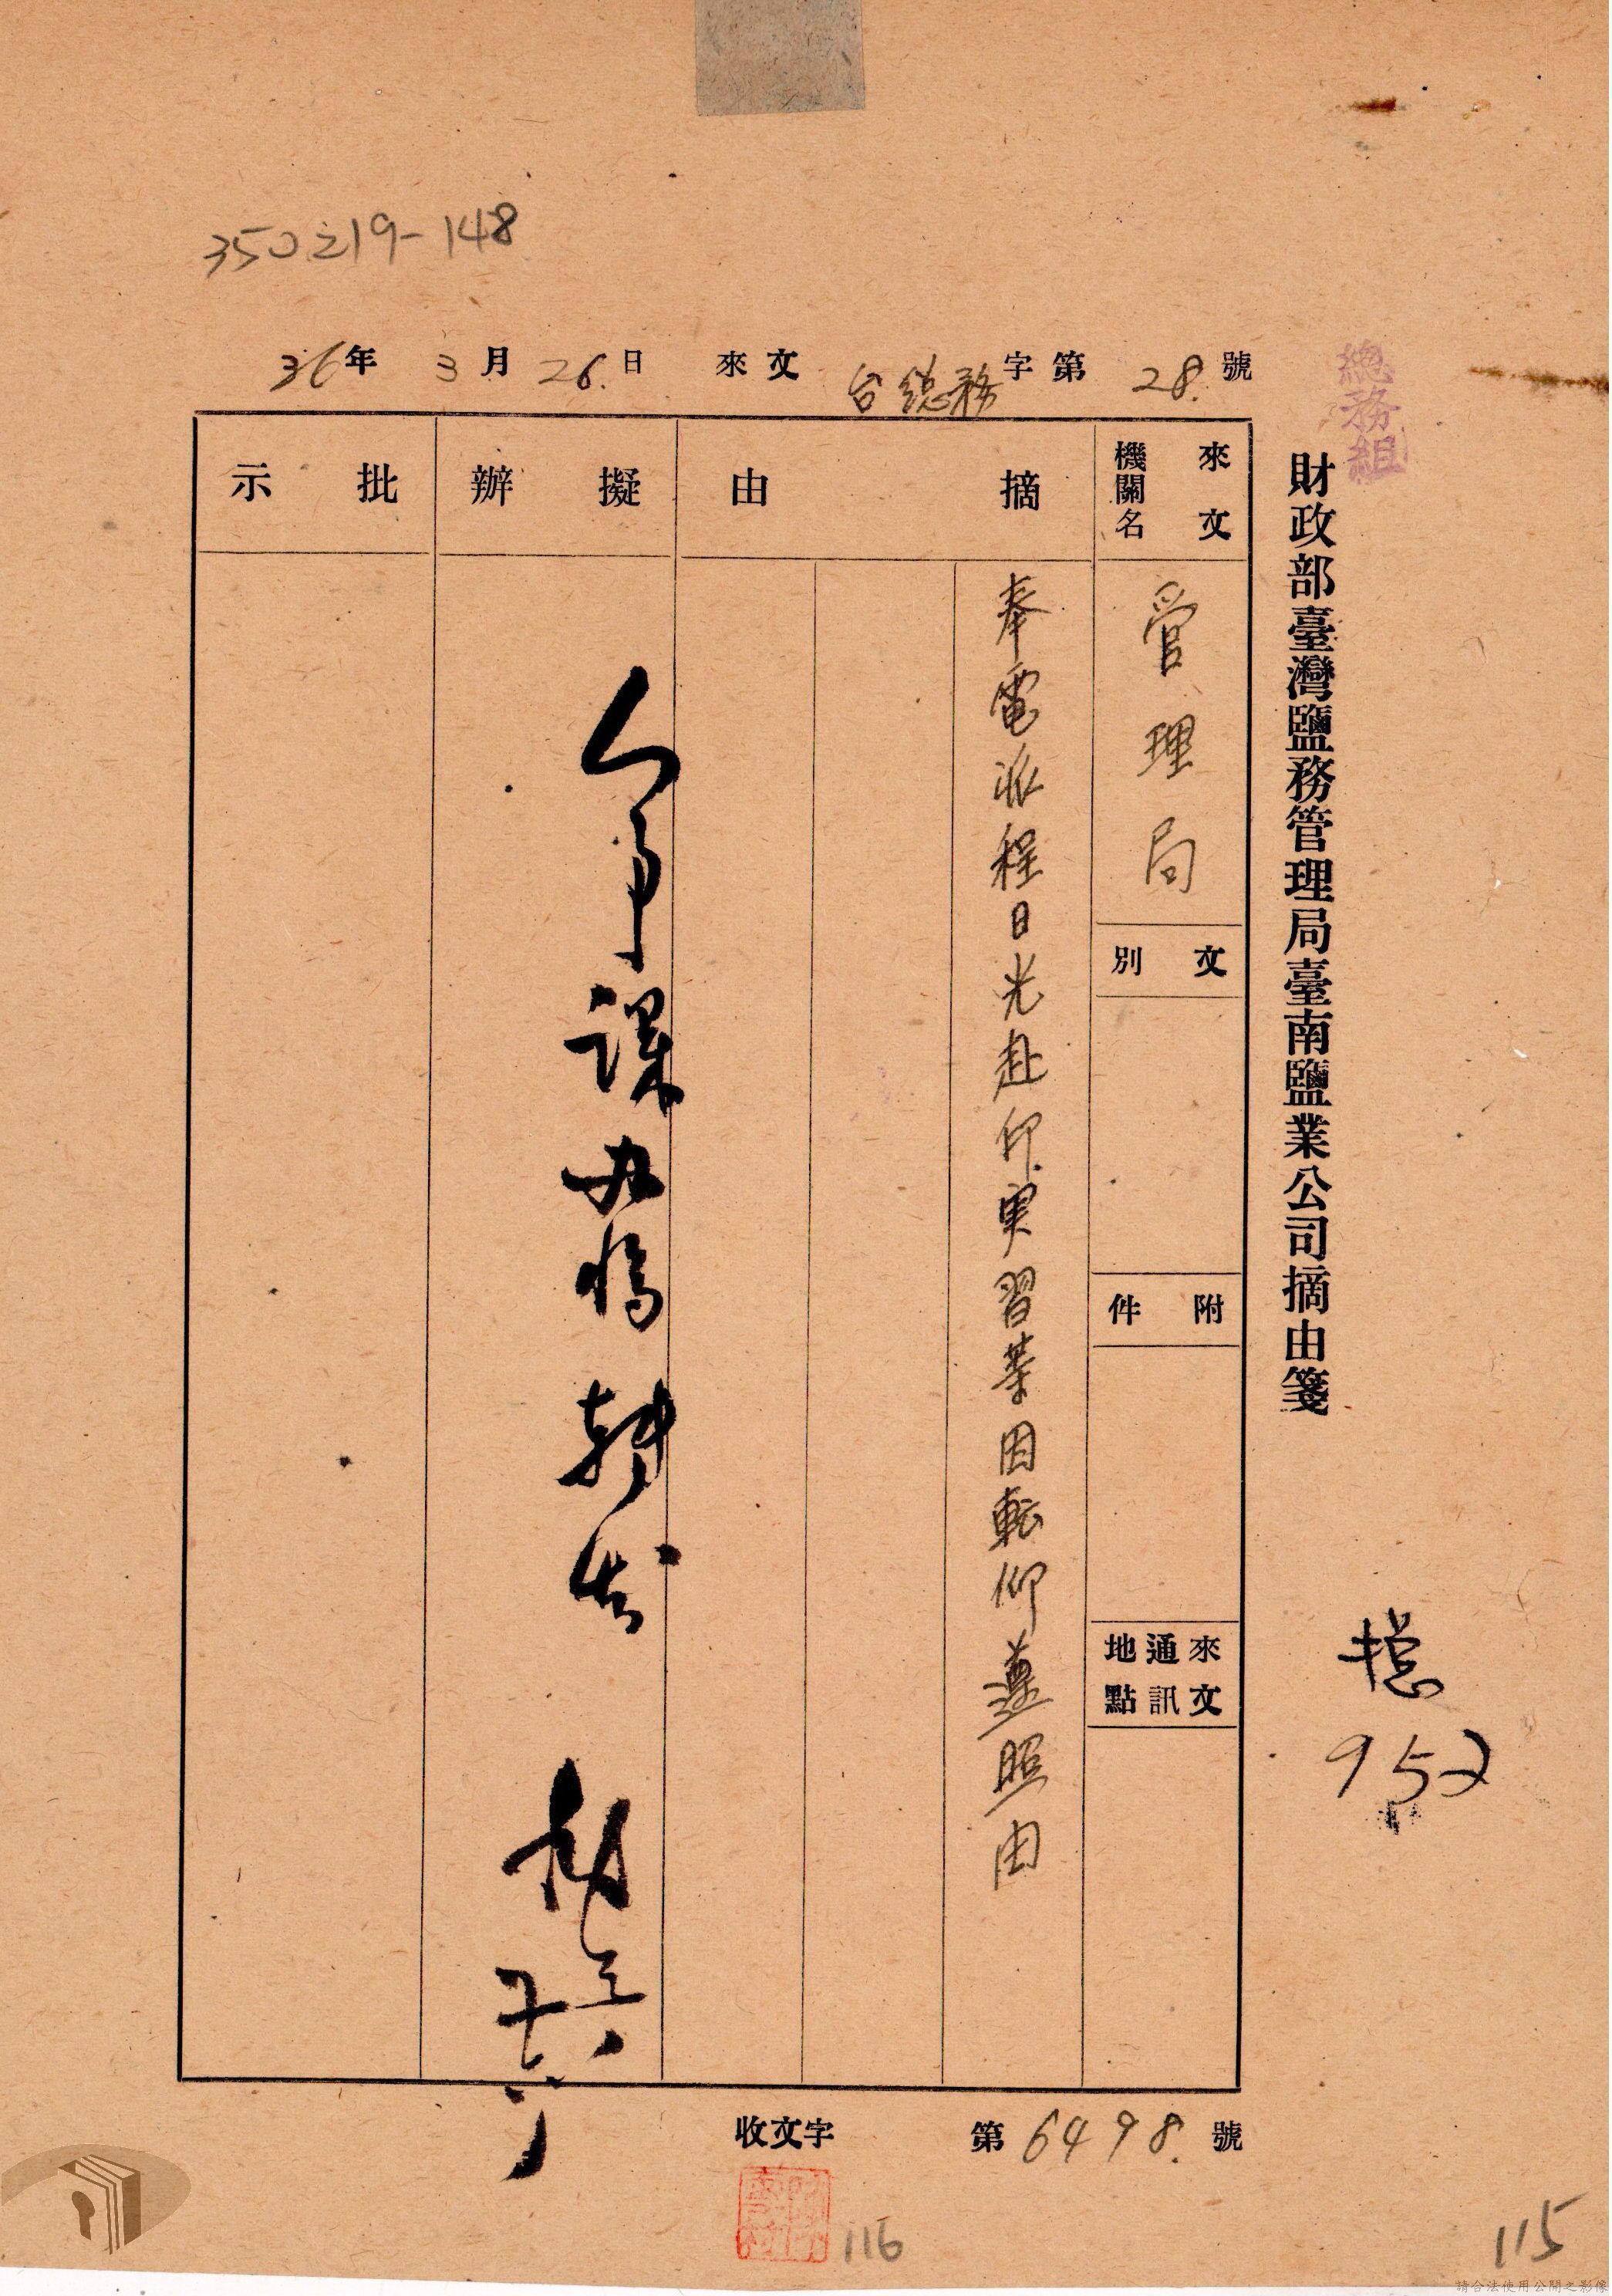 350之19-148
36年3月26.日 來文 台總務字第28.號
總務組
財政部臺灣鹽務管理局臺南鹽業公司摘由箋
來文
機關名
管理局
文別
附件
來文
通訊
地點
摘由
奉電派程日光赴印実習等因転仰遵照由
擬辦
人事課
三
廿六
批示
952
收文字 第6498.號
116
115
請合法使用公開之影像